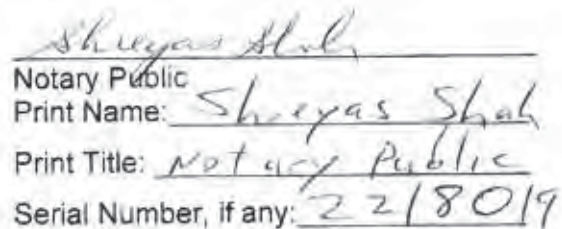 Shreyas Shah
Notary Public
Print Name: Shreyas Shah
Print Title: Notary Public
Serial Number, if any: 228019